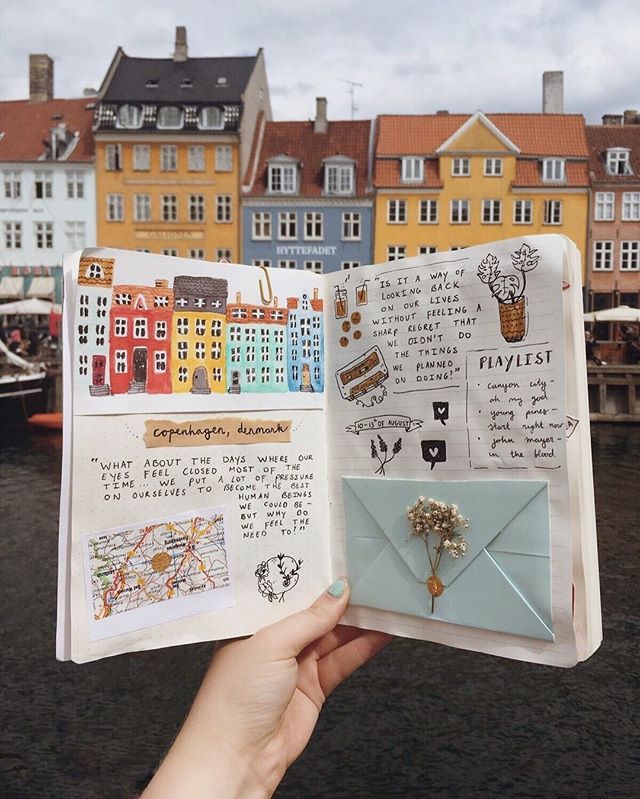 GALIONEN
HYTTEFADET
copenhagen, denmark
"WHAT ABOUT THE DAYS WHERE OUR
EYES FEEL CLOSED MOST OF THE
TIME... WE PUT A LOT OF PRESSURE
ON OURSELVES TO BECOME THE BEST
HUMAN BEINGS
WE COULD BE -
BUT WHY DO
WE FEEL THE
NEED TO?"
"IS IT A WAY OF
LOOKING BACK
ON OUR LIVES
WITHOUT FEELING A
SHARP REGRET THAT
WE DIDN'T DO
THE THINGS
WE PLANNED
ON DOING?"
10-13th OF AUGUST
PLAYLIST
• canyon city -
oh my god
• young pines -
start right now
• john mayer -
in the blood